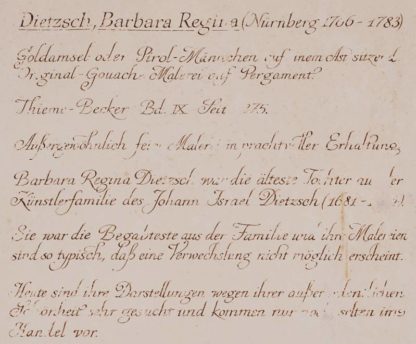 Dietzsch, Barbara Regina (Nürnberg 1706 - 1783)
Goldamsel oder Pirol-Männchen auf einem Ast sitzend.
Original-Gouache-Malerei auf Pergament.
Thieme-Becker Bd. IX Seite 275.
Außergewöhnlich feine Malerei in prachtvoller Erhaltung,
Barbara Regina Dietzsch war die älteste Tochter aus der
Künstlerfamilie des Johann Israel Dietzsch (1681 -
Sie war die Begabteste aus der Familie und ihre Malereien
sind so typisch, daß eine Verwechslung nicht möglich erscheint.
Heute sind ihre Darstellungen wegen ihrer außerordentlichen
Schönheit sehr gesucht und kommen nur noch selten im
Handel vor.